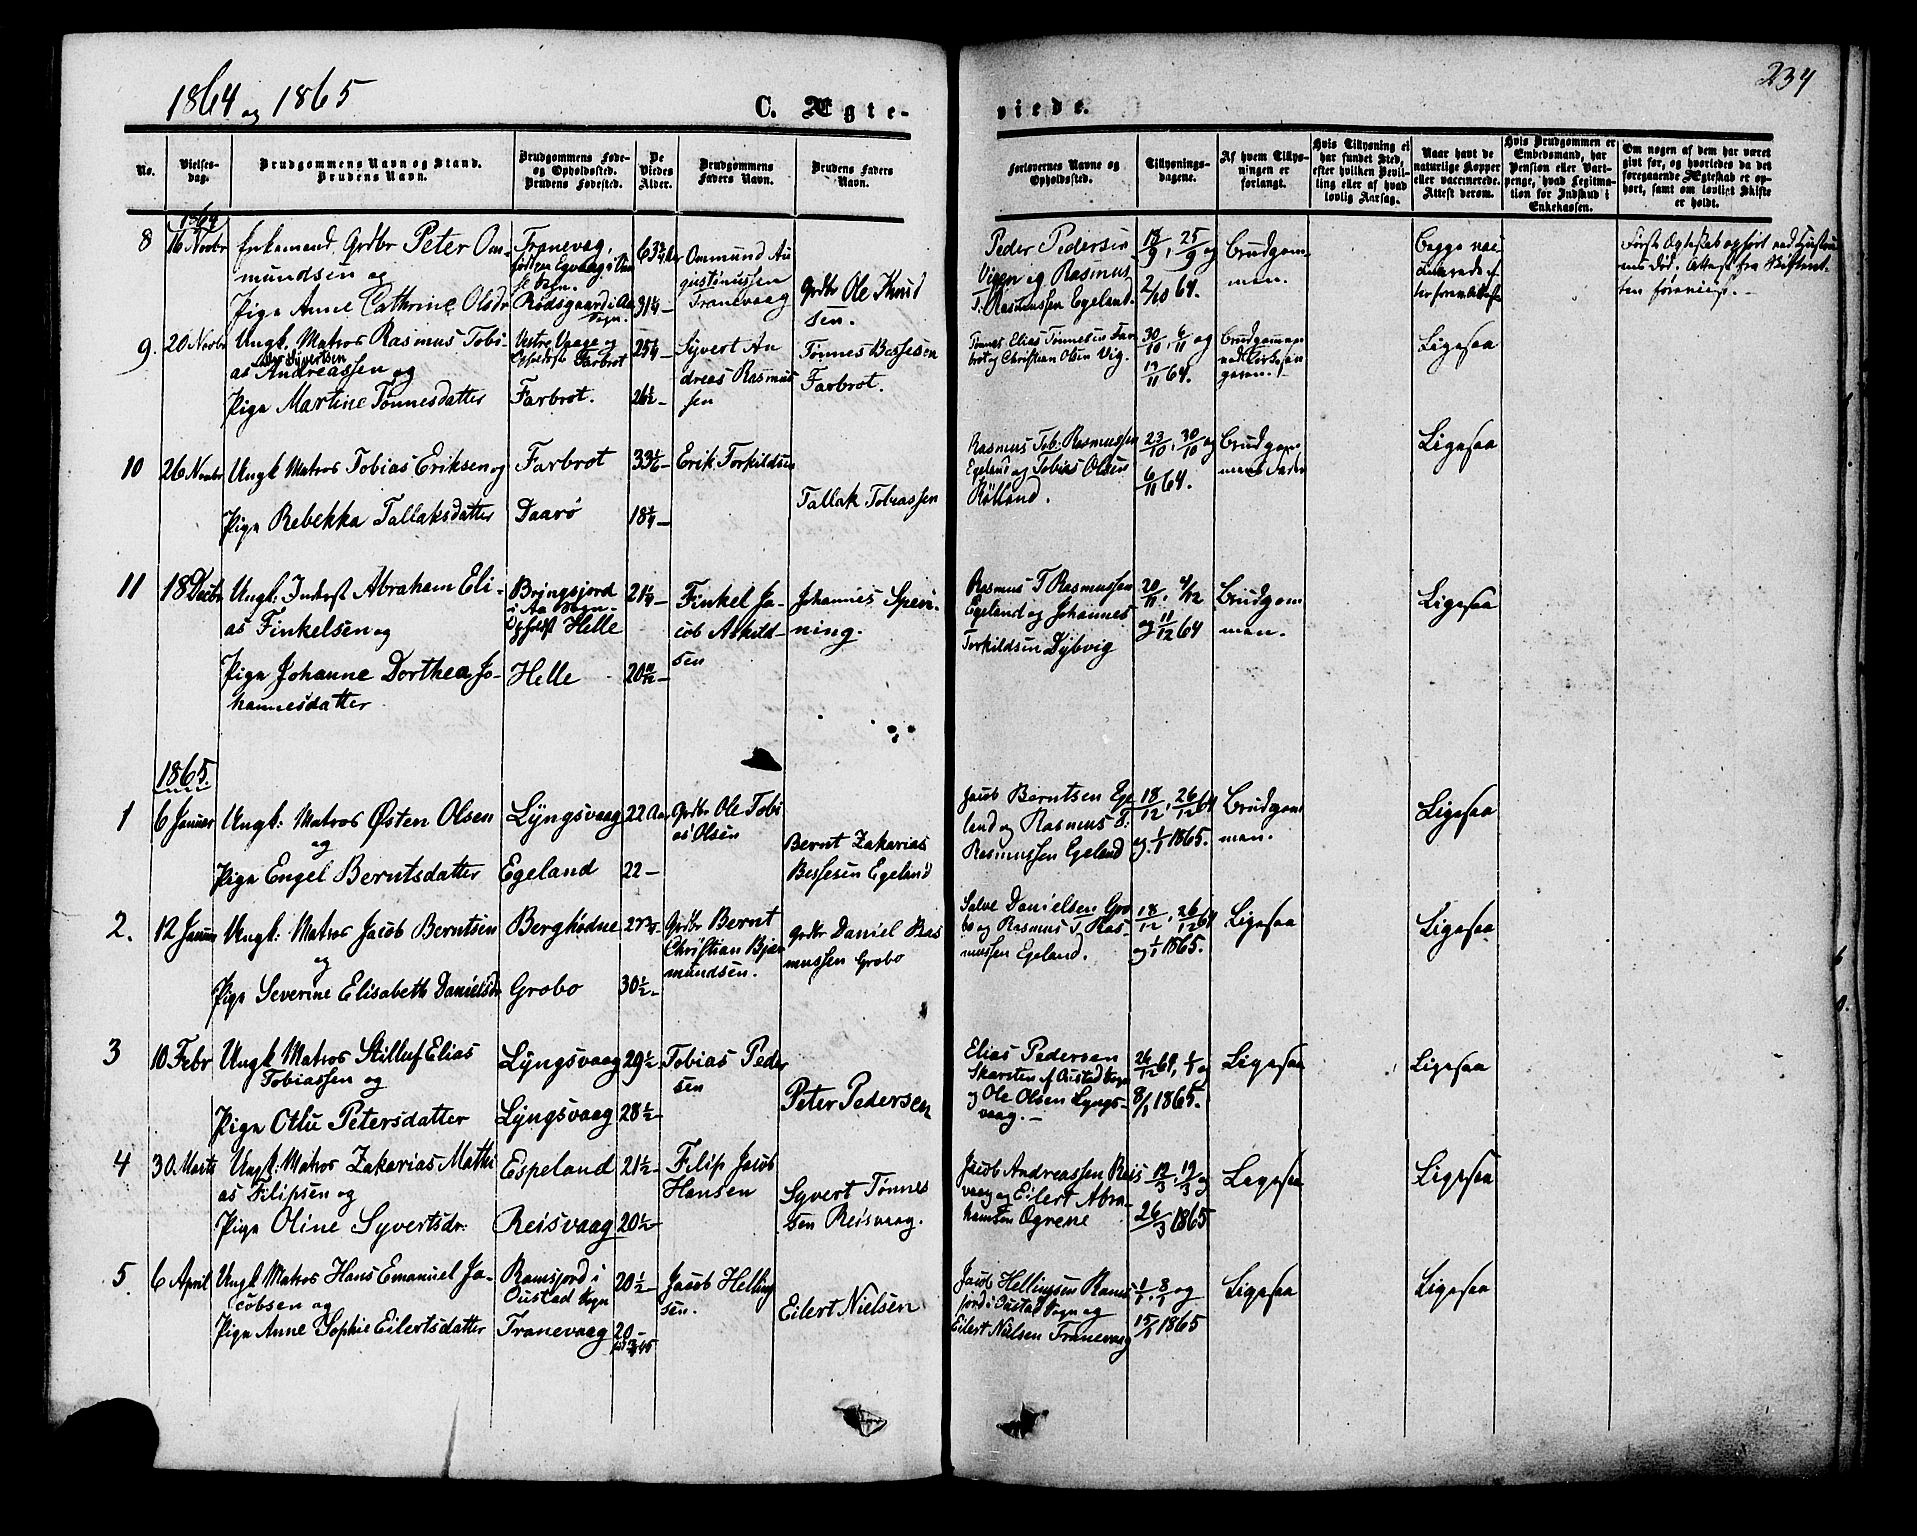 1864 og 1865
C. Ægte-
viede.
234
No.
Vielses-
dag.
Brudgommens Navn og Stand.
Brudens Navn.
Brudgommens Føde-
og Opholdssted.
Brudens Fødested.
De
Viedes
Alder.
Brudgommens
Faders Navn.
Brudens Faders
Navn.
Forlovernes Navne og
Opholdssted.
Tillysnings-
dagene.
Af hvem Tillys-
ningen er
forlangt.
Hvis Tillysning ei
har fundet Sted,
efter hvilken Bevil-
ling eller af hvad
lovlig Aarsag.
Naar havt de
naturlige Kopper
eller vaccinerede.
Attest derom.
Hvis Brudgommen er
Embedsmand, har
Pension eller Vart-
penge, hvad Legitima-
tion for Indskud i
Enkekassen.
Om nogen af dem har været
gift før, og hvorledes da det
foregaaende Ægteskab er op-
hørt, samt om lovligt Skifte
er holdt.
1864
8
16 Novbr
Enkemand Grdbr Peter Om-
mundsen og
Pige Anne Cathrine Olsdr
Tranevaag,
Rødsgaard i Aa
Sogn.
63 3/4 Aar
31 1/4 –
Ommund Au
gustinussen
Tranevaag
Grdbr Ole Knud
sen.
Peder Pedersen
Vigen og Rasmus
T. Rasmussen Egeland.
18/9, 25/9 og
2/10 64.
Brudgom-
men.
Begge vac
Første Ægteskab ophørt ved Hustru-
ens Død. Attest fra Skifteret-
ten foreviist. –
9.
20 Novbr
Ungk. Matros Rasmus Tobi-
as Andreassen og
Pige Martine Tønnesdatter
Vestre Vaage og
Opholdst Farbrot
Farbrot.
25 1/4 –
26 1/2 –
Syvert An
dreas Rasmus
sen
Tønnes Bessesen
Farbrot.
Tønnes Elias Tønnesen Far
brot og Christian Olsen Vig.
30/10, 6/11 og
13/11 64.
Ligesaa
10
26 Novbr
Ungk Matros Tobias Eriksen og
Pige Rebekka Tallaksdatter
Farbrot
Daarø
33 1/6 –
18 1/4 –
Erik Torkildsen
Tallak Tobiassen
Rasmus Tob. Rasmussen
Egeland og Tobias Olsen
Røiland.
23/10, 30/10 og
6/11 64.
Brudgom-
mens Fader
Ligesaa
11
18 Decbr
Ungk. Inderst Abraham Eli-
as Finkelsen og
Pige Johanne Dorthea Jo-
hannesdatter
Bringsjord
i Aa Sogn-
Opholdst Helle
Helle
21 1/4 –
20
Finkel Ja-
cob Askild-
sen
Johannes Spen-
ning.
Rasmus T Rasmussen
Egeland og Johannes
Torkildsen Dybvig
20/11, 4/12
og 11/12 64
Brudgom
men.
Ligesaa
1865.
1
6 Januar
Ungk: Matros Østen Olsen
og
Pige Engel Berntsdatter
Lyngsvaag
Egeland
22 Aar
22 –
Grdbr Ole Tobi
as Olsen
Bernt Zakarias
Bessesen Egeland
Jacob Berntsen Ege
land og Rasmus T.
Rasmussen Egeland
18/12, 26/12 64
og 1/1 1865.
Brudgom
men.
Ligesaa
2.
12 Januar
Ungk: Matros Jacob Berntsen
og
Pige Severine Elisabeth Danielsdr
Berghødne
Grobo
27
30 1/2 –
Grdbr Bernt
Christian Bjør
mundsen.
Grdbr Daniel Ras
mussen Grobo
Salve Danielsen Gro
bo og Rasmus T. Ras-
mussen Egeland.
18/12, 26/12 64
og 1/1 1865.
Ligesaa
Ligesaa
3
10 Febr
Ungk Matros Stilluf Elias
Tobiassen og
Pige Otlu Petersdatter
Lyngsvaag
Lyngsvaag
29 1/2 –
28 1/2 –
Tobias Peder
sen
Peter Pedersen
Elias Pedersen
Skarsten af Oustad Sogn
og Ole Olsen Lyngs-
vaag. –
26/12 64, 1/1 og
8/1 1865.
Ligesaa
Ligesaa
4
30 Marts
Ungk: Matros Zakarias Mathi
as Filipsen og
Pige Oline Syvertsdr.
Espeland
Reisvaag
21 1/2 –
20 1/2 –
Filip Jacob
Hansen
Syvert Tønnes
sen Reisvaag.
Jacob Andreassen Reis
vaag og Eilert Abra-
hamsen Øgrene
12/3, 19/3 og
26/3 1865
Ligesaa
Ligesaa
5.
6 April
Ungk Matros Hans Emanuel Ja-
cobsen og
Pige Anne Sophie Eilertsdatter
Ramsjord i
Oustad Sogn
Tranevaag
20 1/2 –
20 –
Jacob Helling
sen.
Eilert Nielsen
Jacob Hellingsen Rams
jord i Oustad Sogn og
Eilert Nielsen Tranevaag
1/1, 8/1 og
15/1 1865
Ligesaa
Ligesaa